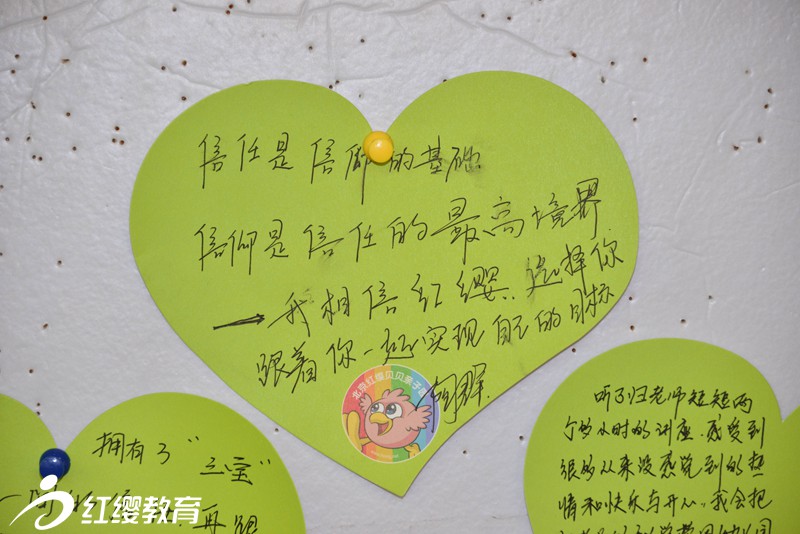 信任是信仰的基础
信仰是信任的最高境界
我相信红缨.选择你
跟着你一起实现自己的目标
北京红缨贝贝亲子园
拥有了“三宝”
再跟
听了归老师短短两
个多小时的讲座.感受到
很多从来没感觉到的热
情和快乐与开心.我会把
红缨教育